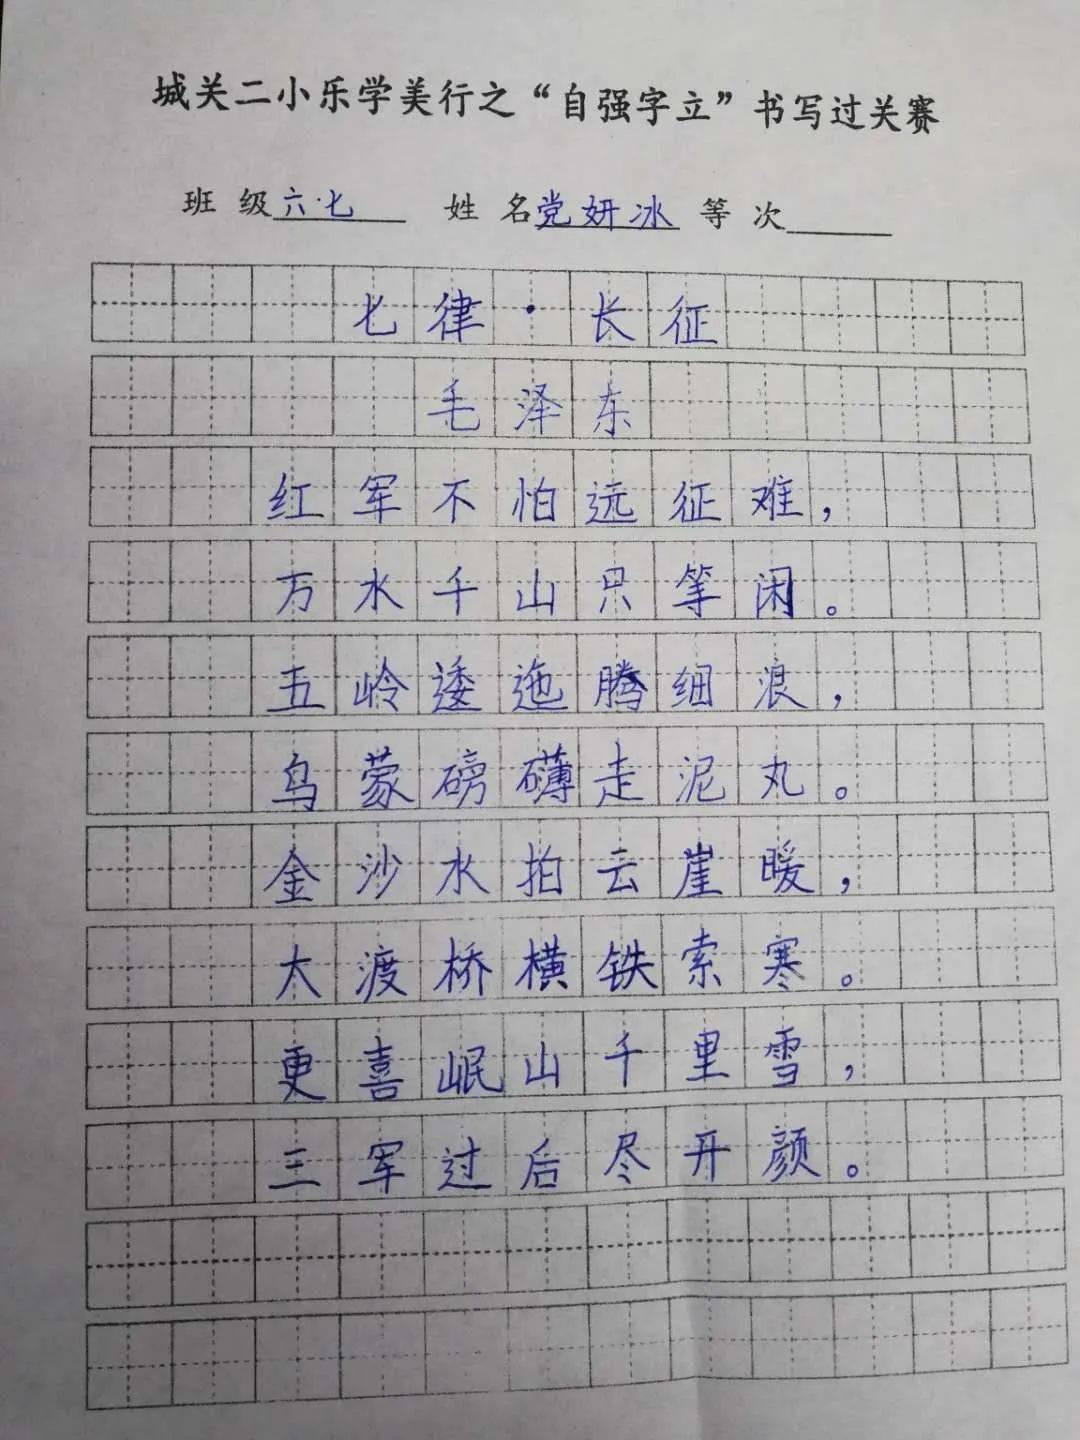 城关二小乐学美行之“自强字立”书写过关赛
班 级 六·七 姓 名 党妍冰 等 次
七律·长征
毛泽东
红军不怕远征难，
万水千山只等闲。
五岭逶迤腾细浪，
乌蒙磅礴走泥丸。
金沙水拍云崖暖，
大渡桥横铁索寒。
更喜岷山千里雪，
三军过后尽开颜。